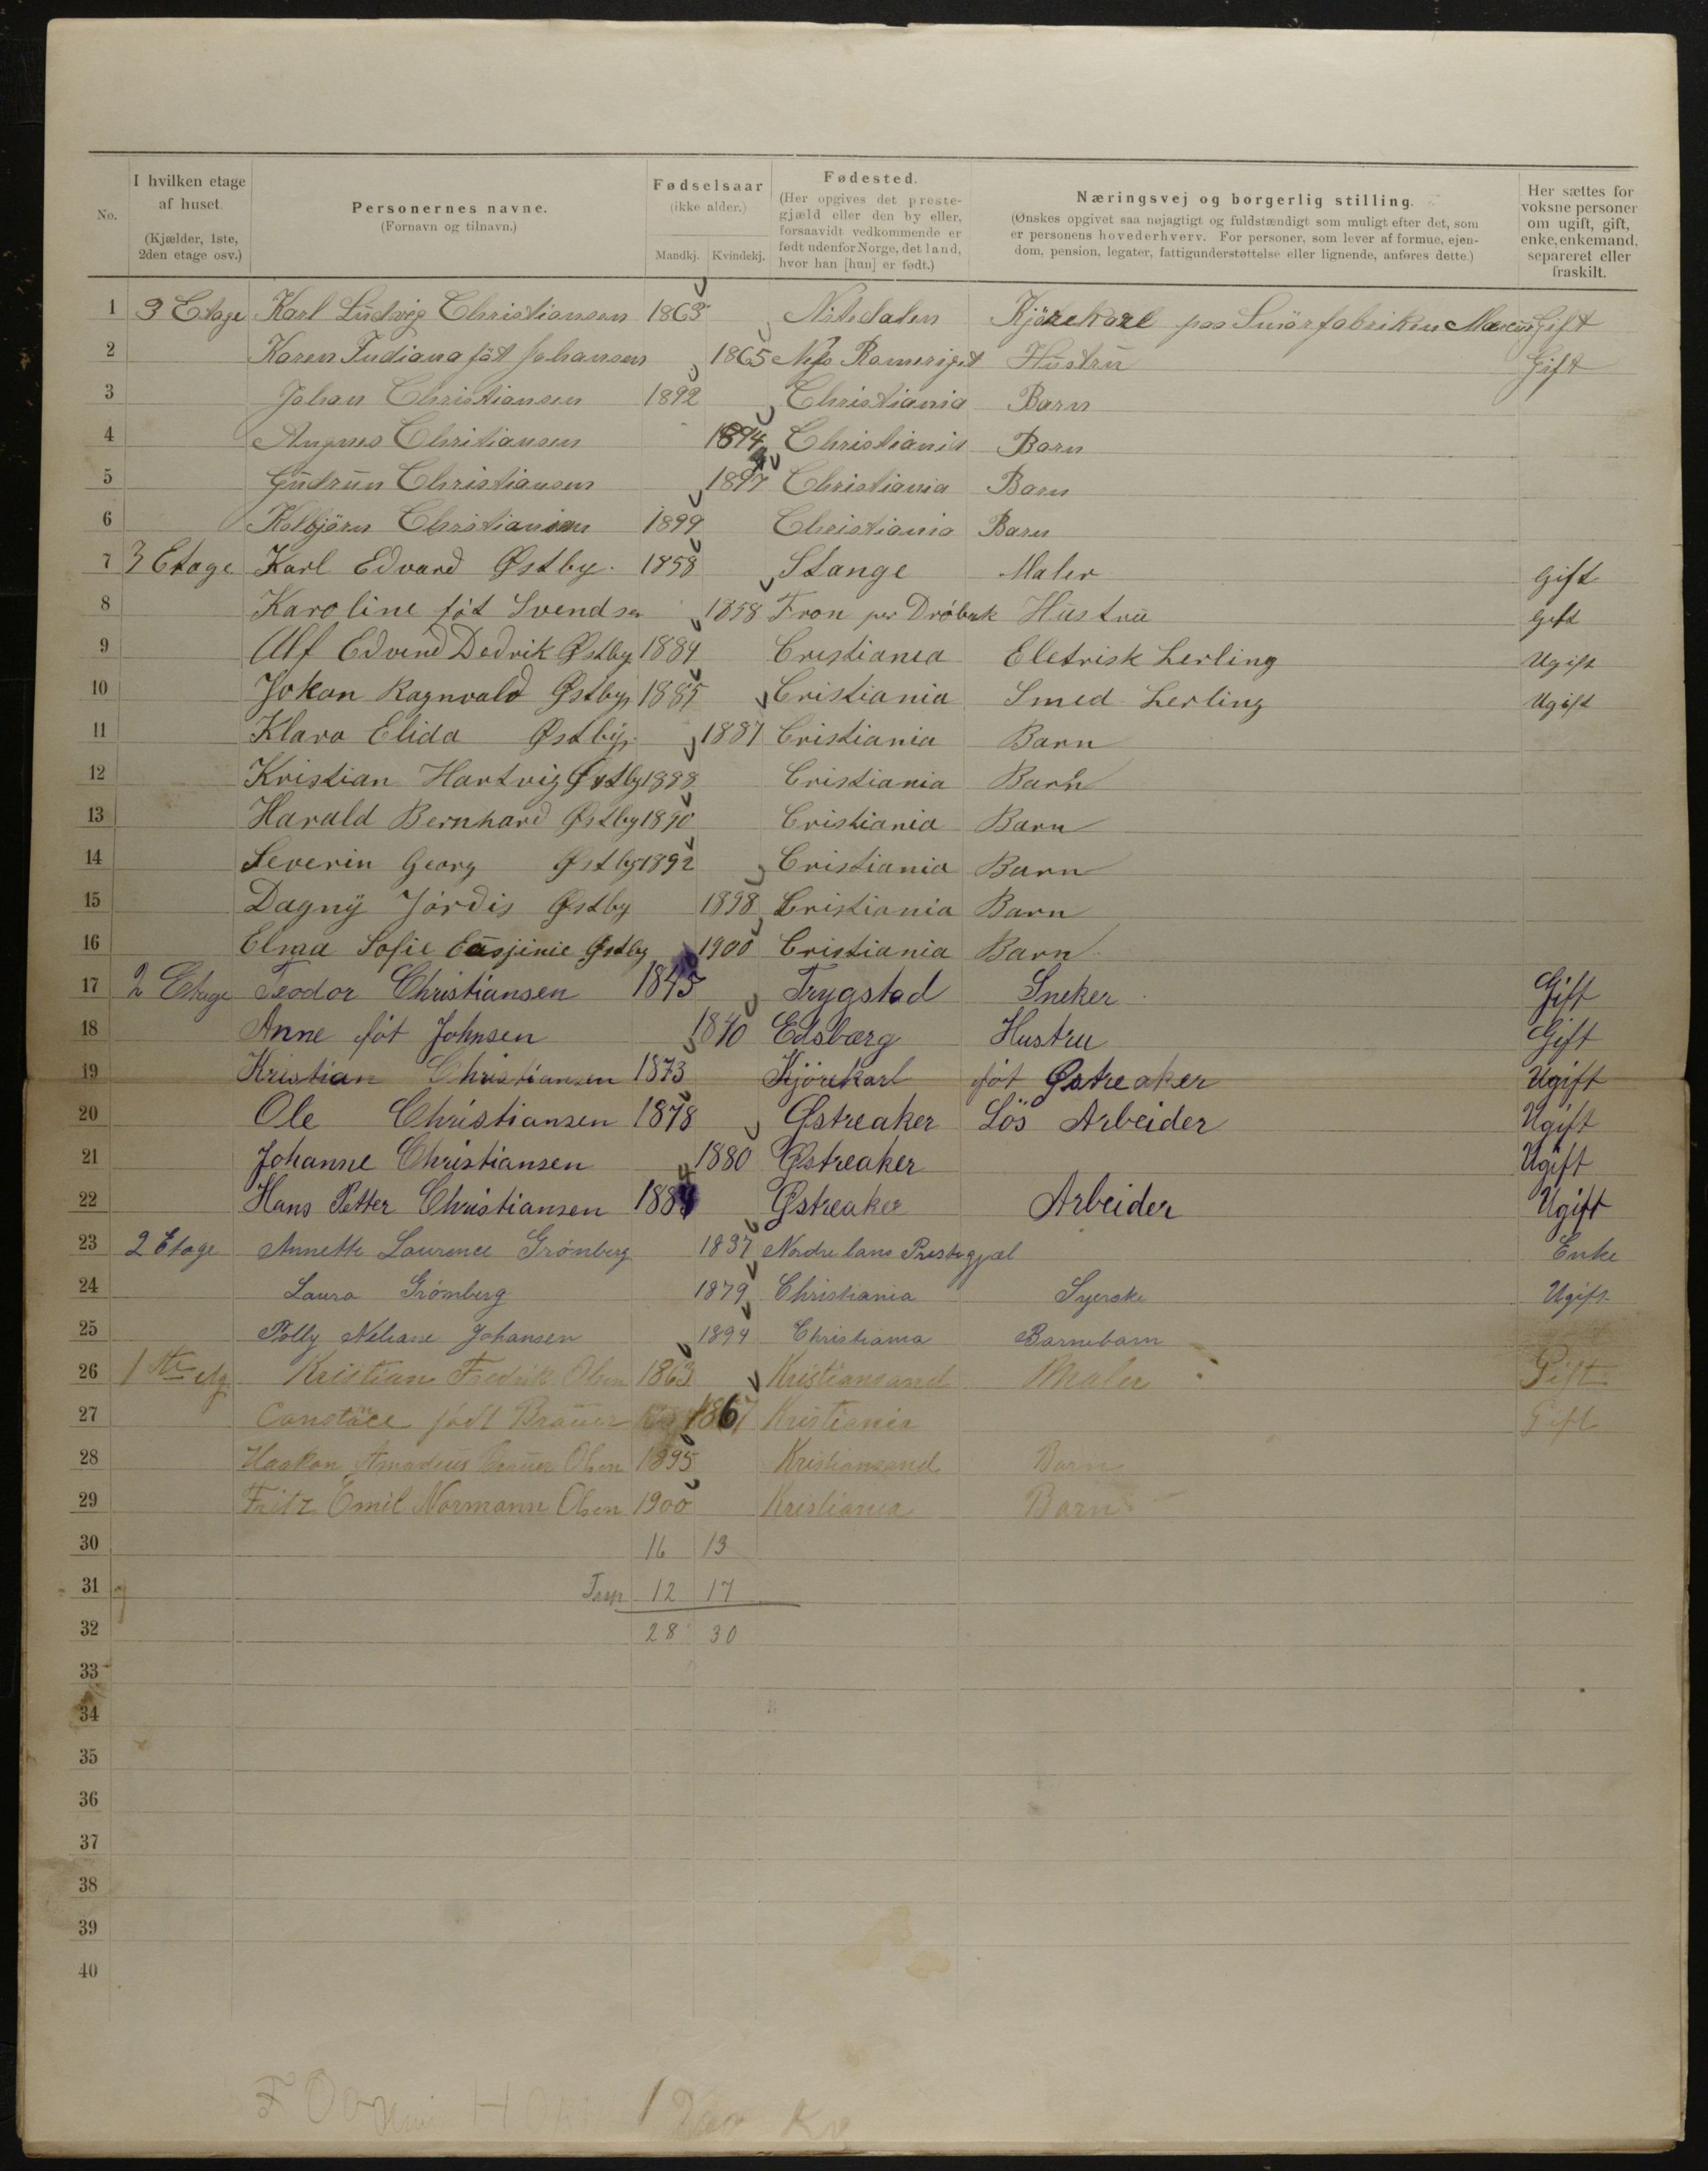 No.
I hvilken etage af huset.
(Kjælder, 1ste, 2den etage osv.)
Personernes navne.
(Fornavn og tilnavn.)
Fødselsaar
(ikke alder.)
Mandkj. Kvindekj.
Fødested.
(Her opgives det prestegjæld eller den by eller, forsaavidt vedkommende er født udenfor Norge, det land, hvor han [hun] er født.)
Næringsvej og borgerlig stilling.
(Ønskes opgivet saa nøjagtigt og fuldstændigt som muligt efter det, som er personens hovederhverv. For personer, som lever af formue, ejendom, pension, legater, fattigunderstøttelse eller lignende, anføres dette.)
Her sættes for voksne personer om ugift, gift, enke, enkemand, separeret eller fraskilt.
1 3 Etage Karl Ludvig Christiansen 1863 Nitedalen Kjörekarl paa Smörfabriken Gift
2 Karen föt Johansen 1865 Nes Romeriget Hustru Gift
3 Johan Christiansen 1892 Christiania Barn
4 Angnes Chritiansen 1894 Christiania Barn
5 Gudrun Christiansen 1897 Christiania Barn
6 Kolbjörn Christiansen 1899 Christiania Barn
7 3 Etage Karl Edvard Østby. 1858 Stange Maler Gift
8 Karoline föt Svendsen 1858 Fron per Dröbak Hustru Gift
9 Alf Edvind Dedrik Østby 1884 Cristiania Eletrisk Lerling Ugift
10 Jokan Ragnvald Østby 1885 Cristiania Smed Lerling Ugift
11 Klara Elida Østby. 1887 Cristiania Barn
12 Kristian Hartvig Østby 1888 Cristiania Barn
13 Harald Bernhard Østby 1890 Cristiania Barn
14 Severin Georg Østby 1892 Cristiania Barn
15 Dagny Jördis Østby 1898 Cristiania Barn
16 Elma Sofie Eusjinie Østby 1900 Cristiania Barn
17 2 Etage Teodor Christiansen 1845 Trygstad Sneker Gift
18 Anne föt Johnsen 1840 Edsbærg Hustru Gift
19 Kristian Christiansen 1873 Kjörekarl föt Østreaker Ugift
20 Ole Christiansen 1878 Østreaker Lös Arbeider Ugift
21 Johanne Christiansen 1880 Østreaker Ugift
22 Hans Petter Christiansen 1884 Østreaker Arbeider Ugift
23 2 Etage Annette Laurence Grønberg 1837 Nordre lans Prestegjæl Enke
24 Laura Grønberg 1879 Christiania Syerske Ugift
25 Polly Johansen 1894 Christiania Barnebarn
26 1ste etg Kristian Fredrik Olsen 1863 Kristiansand Maler Gift
27 födt Brauer 1867 Kristiania Gift
28 Haakon Amadeus Brauer Olsen 1895 Kristiansand Barn
29 Fritz Emil Normann Olsen 1900 Kristiania Barn
30 16 13
31 12 17
32 28 30
33
34
35
36
37
38
39
40